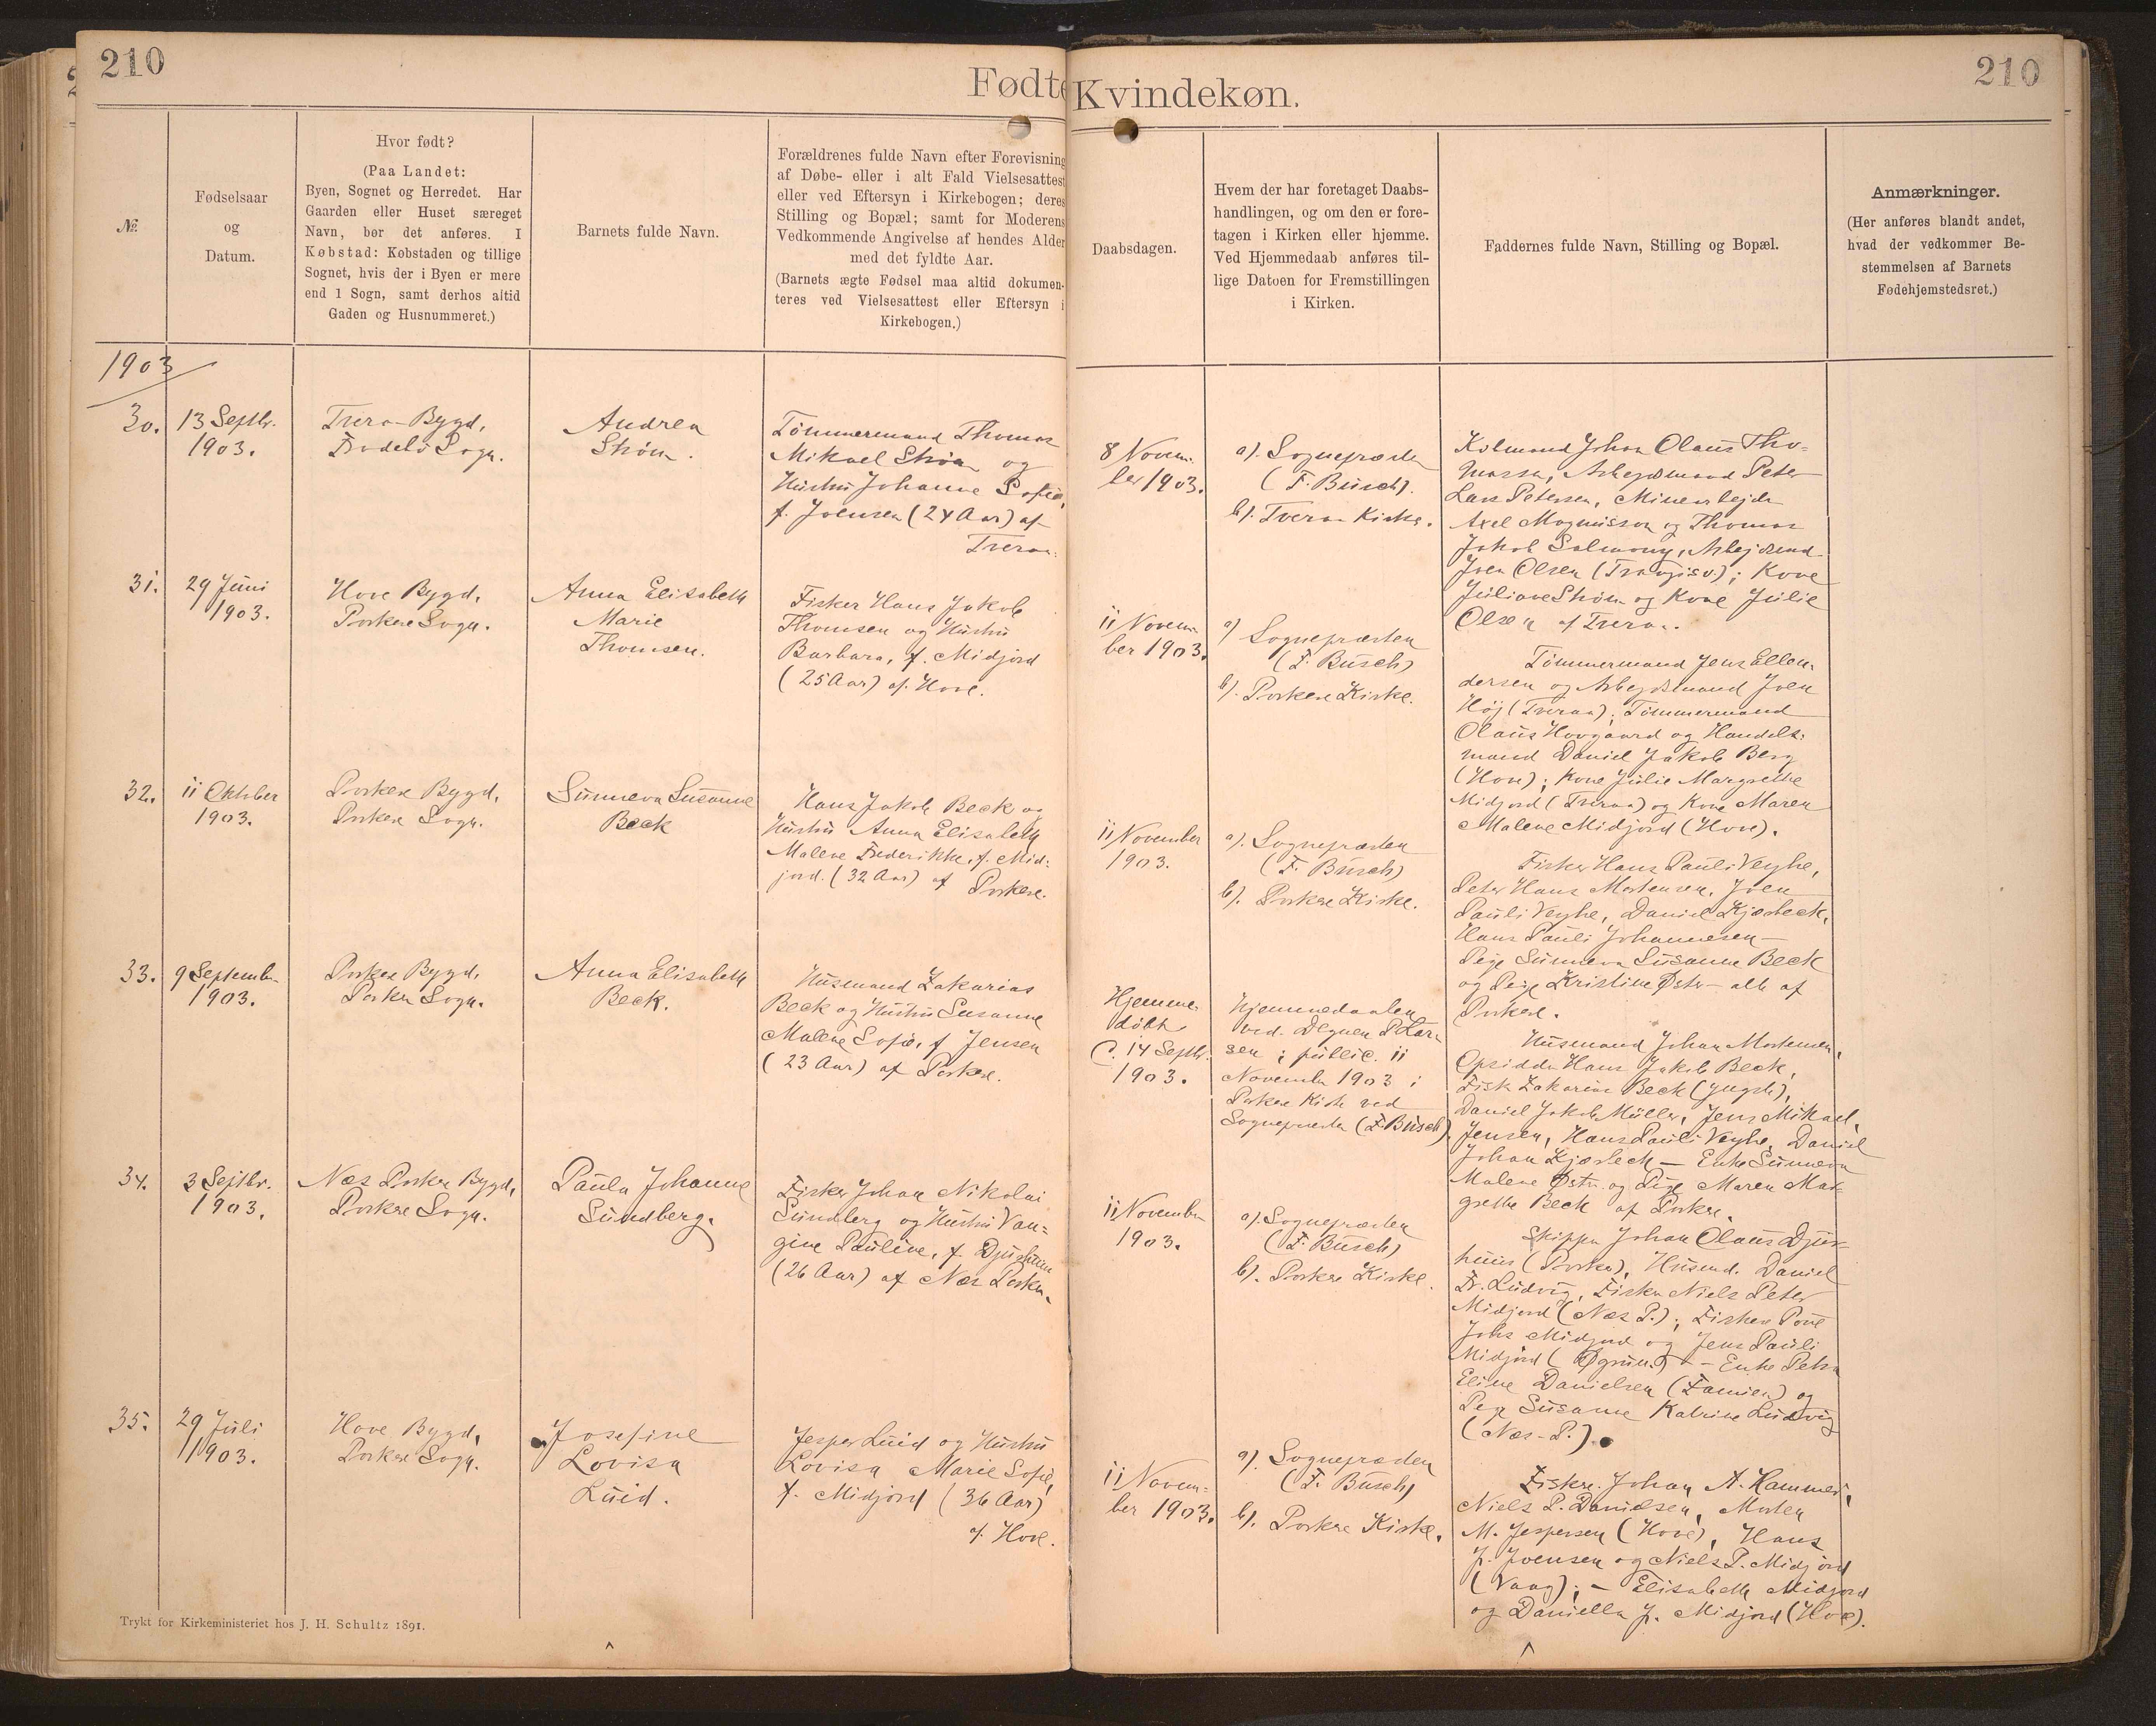 210
210
Fødte
Kvindekøn.
№.
Fødselsaar
og
Datum.
Hvor født?
(Paa Landet:
Byen, Sognet og Herredet. Har
Gaarden eller Huset særeget
Navn, bør det anføres. I
Købstad: Købstaden og tillige
Sognet, hvis der i Byen er mere
end 1 Sogn, samt derhos altid
Gaden og Husnummeret.)
Barnets fulde Navn.
Forældrenes fulde Navn efter Forevisning
af Døbe- eller i alt Fald Vielsesattest
eller ved Eftersyn i Kirkebogen; deres
Stilling og Bopæl; samt for Moderens
Vedkommende Angivelse af hendes Alder
med det fyldte Aar.
(Barnets ægte Fødsel maa altid dokumen-
teres ved Vielsesattest eller Eftersyn i
Kirkebogen.)
Daabsdagen.
Hvem der har foretaget Daabs-
handlingen, og om den er fore-
tagen i Kirken eller hjemme.
Ved Hjemmedaab anføres til-
lige Datoen for Fremstillingen
i Kirken.
Faddernes fulde Navn, Stilling og Bopæl.
Anmærkninger.
(Her anføres blandt andet,
hvad der vedkommer Be-
stemmelsen af Barnets
Fødehjemstedsret.)
1903
30.
13 Septbr.
1903.
Tveraa Bygd,
Frodebø Sogn.
Andrea
Strøm.
Tømmermand Thomas
Mikael Strøm og
Hustru Johanne Sofie,
f. Joensen (24 Aar) af
Tveraa.
8 Novem-
ber 1903.
a). Sognepræsten
(F. Busch).
b). Tveraa Kirke.
Johan Olaus Tho-
massen, Arbejdsmand Peter
Lars Petersen, Minearbejder
Axel Magnusson og Thomas
Jakob
Joen Olsen (Trangisv.); Kone
Juliane Strøm og Kone Julie
Olsen af Tveraa.
31.
29 Juni
1903.
Hove Bygd,
Porkere Sogn.
Anna Elisabeth
Marie
Thomsen.
Fisker Hans Jakob
Thomsen og Hustru
Barbara, f. Midjord
(25 Aar) af Hove.
11 Novem-
ber 1903.
a) Sognepræsten
(F. Busch)
b). Porkere Kirke.
Tømmermand Jens Ellen-
dersen og Arbejdsmand Joen
Høj (Tveraa); Tømmermand
Olaus Hovgaard og Handels-
mand Daniel Jakob Berg
(Hove); Kone Julie Margrethe
Midjord (Tveraa) og Kone Maren
Malene Midjord (Hove).
32.
11 Oktober
1903.
Porkere Bygd,
Porkere Sogn.
Sunneva Susanne
Beck
Hans Jakob Beck og
Hustru Anna Elisabeth
Malene Frederikke, f. Mid-
jord. (32 Aar) af Porkere.
11 November
1903.
a). Sognepræsten
(F. Busch)
b). Porkere Kirke.
Fisker Hans Pauli Veyhe,
Peter Hans Mortensen, Joen
Pauli Veyhe, Daniel Kjærbeck,
Hans Pauli Johannesen —
Pige Sunneva Susanne Beck
og Pige Kristine Øster — alle af
Porkere.
33.
9 September
1903.
Porkere Bygd,
Porkere Sogn.
Anna Elisabeth
Beck.
Husmand Zakarias
Beck og Hustru Susanne
Malene Sofie, f. Jensen
(23 Aar) af Porkere.
Hjemme-
døbt
d. 14 Septbr.
1903.
Hjemmedaaben
ved Degnen P. Lar-
sen; public. 11
November 1903 i
Porkere Kirke ved
Sognepræsten (F. Busch).
Husmand Johan Mortensen,
Opsidder Hans Jakob Beck,
Fisk. Zakarias Beck (yngste),
Daniel Jakob Müller, Jens Mikael
Jensen, Hans Pauli Veyhe, Daniel
Johan Kjærbeck — Enke Sunneva
Malene Øster og Pige Maren Mar-
grethe Beck af Porkere.
34.
3 Septbr.
1903.
Næs Porkere Bygd,
Porkere Sogn.
Paula Johanne
Sundberg.
Fisker Johan Nikolai
Sundberg og Hustru Van-
gine Pauline, f. Djurhuus
(26 Aar) af Næs Porkere.
11 November
1903.
a). Sognepræsten
(F. Busch)
b). Porkere Kirke.
Skipper Johan Olaus Djur-
huus (Porkere), Husmd. Daniel
Fr. Ludvig, Fisker Niels Peter
Midjord (Næs P.); Fiskere Poul
Johs Midjord og Jens Pauli
Midjord — Enke Petra
Eline Danielsen (Famien) og
Pige Susanne Katrine Ludvig
(Næs - P.).
35.
29 Juli
1903.
Hove Bygd,
Porkere Sogn.
Josefine
Lovisa
Luid.
Jesper Luid og Hustru
Lovisa Marie Sofie,
f. Midjord (36 Aar)
af Hove.
11 Novem-
ber 1903.
a). Sognepræsten
(F. Busch)
b). Porkere Kirke.
Fiskere Johan A. Hammer,
Niels P. Danielsen, Morten
M. Jespersen (Hove), Hans
J. Joensen og Niels P. Midjord
(Vaag); — Elisabeth Midjord
og Daniella J. Midjord (Hove).
Trykt for Kirkeministeriet hos J. H. Schultz 1891.